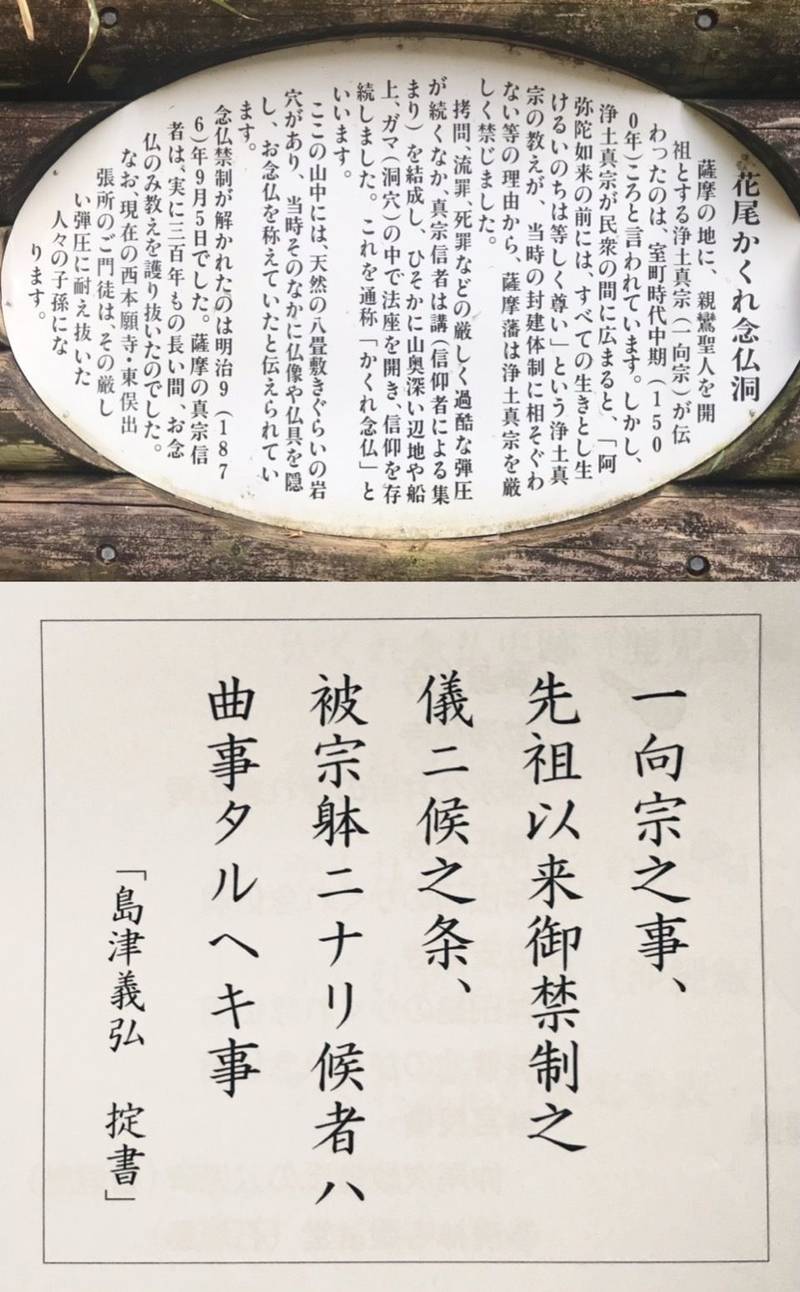 花尾かくれ念仏洞
薩摩の地に、親鸞聖人を開
祖とする浄土真宗(一向宗)が伝
わったのは、室町時代中期(150
0年)ころと言われています。しかし、
浄土真宗が民衆の間に広まると、「阿
弥陀如来の前には、すべての生きとし生
けるいのちは等しく尊い」という浄土真
宗の教えが、当時の封建体制に相そぐわ
ない等の理由から、薩摩藩は浄土真宗を厳
しく禁じました。
拷問、流罪、死罪などの厳しく過酷な弾圧
が続くなか、真宗信者は講(信仰者による集
まり)を結成し、ひそかに山奥深い辺地や船
上、ガマ(洞穴)の中で法座を開き、信仰を存
続しました。これを通称「かくれ念仏」と
いいます。
ここの山中には、天然の八畳敷きぐらいの岩
穴があり、当時そのなかに仏像や仏具を隠
し、お念仏を称えていたと伝えられてい
ます。
念仏禁制が解かれたのは明治9(187
6)年9月5日でした。薩摩の真宗信
者は、実に三百年もの長い間、お念
仏のみ教えを護り抜いたのでした。
なお、現在の西本願寺・東俣出
張所のご門徒は、その厳し
い弾圧に耐え抜いた
人々の子孫にな
ります。
一向宗之事、
先祖以来御禁制之
儀ニ候之条、
被宗躰ニナリ候者ハ
曲事タルヘキ事
「島津義弘 掟書」